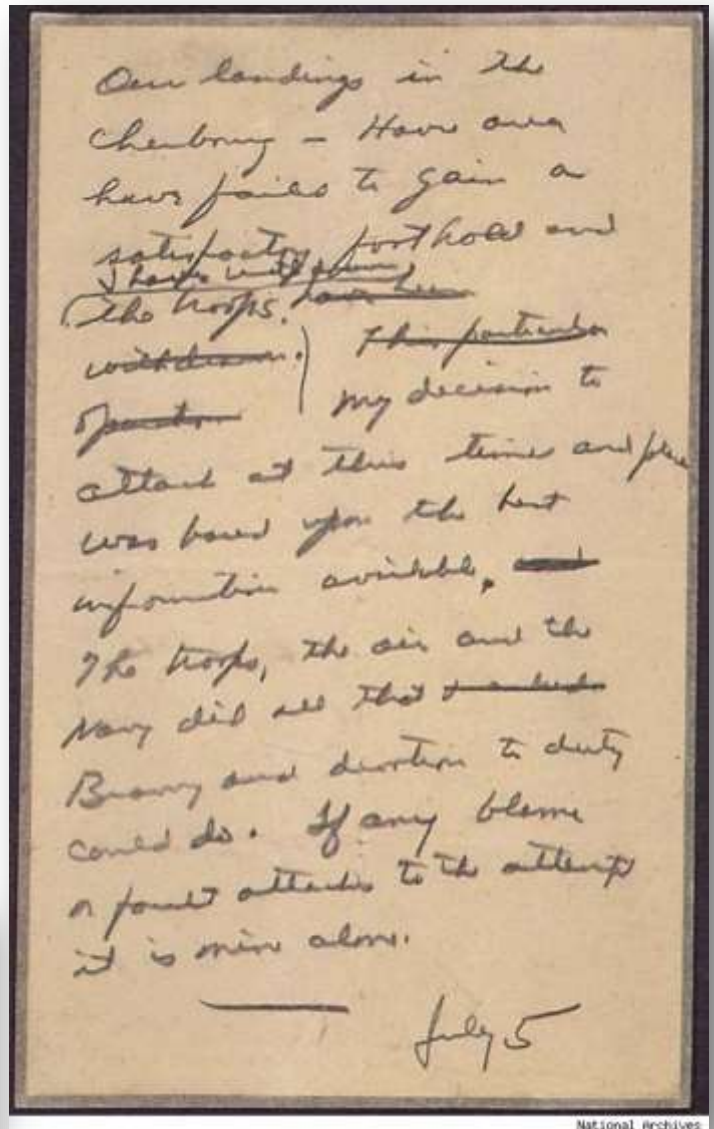 Our landings in the
Cherbourg - Havre area
have failed to gain a
satisfactory foothold and
I have withdrawn
the troops. have been
withdrawn. This particular
operation My decision to
attack at this time and place
was based upon the best
information available, and
The troops, the air and the
Navy did all that
Bravery and devotion to duty
could do. If any blame
or fault attaches to the attempt
it is mine alone.
July 5
National Archives